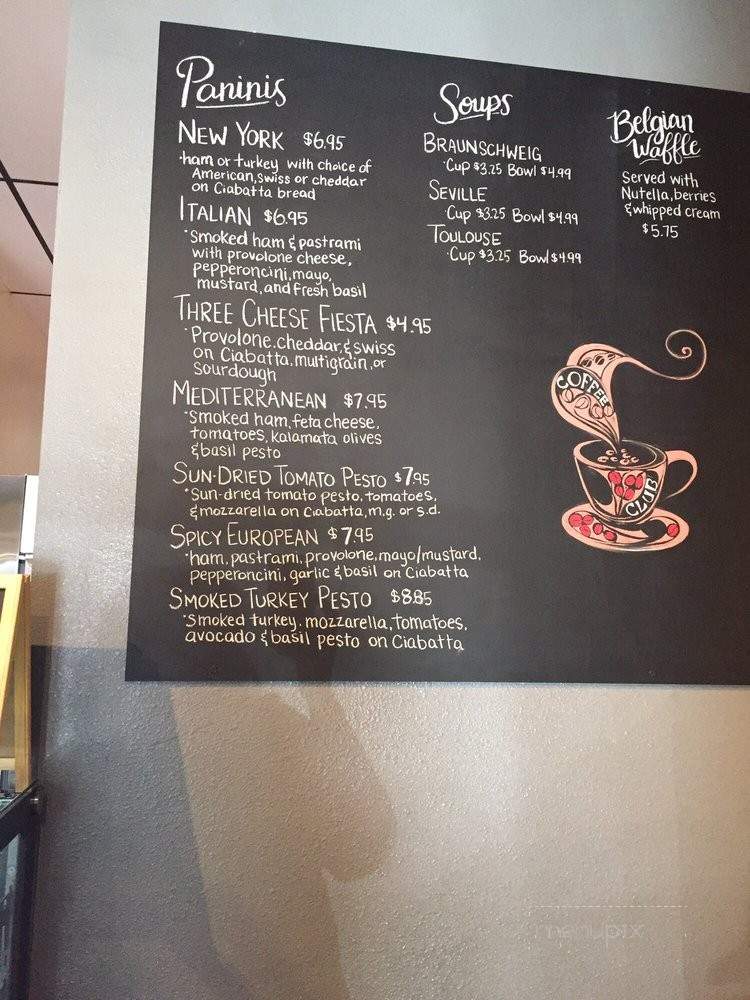 Paninis
NEW YORK $6.95
·ham or turkey with choice of
American, swiss or cheddar
on Ciabatta bread
ITALIAN $6.95
·Smoked ham & pastrami
with provolone cheese,
pepperoncini, mayo,
mustard, and fresh basil
THREE CHEESE FIESTA $4.95
·Provolone, cheddar, & swiss
on Ciabatta, multigrain, or
sourdough
MEDITERRANEAN $7.95
·Smoked ham, feta cheese,
tomatoes, kalamata olives
& basil pesto
SUN-DRIED TOMATO PESTO $7.95
·Sun-dried tomato pesto, tomatoes,
& mozzarella on Ciabatta, m.g. or s.d.
SPICY EUROPEAN $7.95
·ham, pastrami, provolone, mayo/mustard,
pepperoncini, garlic & basil on Ciabatta
SMOKED TURKEY PESTO $8.85
·Smoked turkey, mozzarella, tomatoes,
avocado & basil pesto on Ciabatta
Soups
BRAUNSCHWEIG
·Cup $3.25 Bowl $4.99
SEVILLE
·Cup $3.25 Bowl $4.99
TOULOUSE
·Cup $3.25 Bowl $4.99
Belgian
Waffle
Served with
Nutella, berries
& whipped cream
$5.75
COFFEE
CLUB
menupix